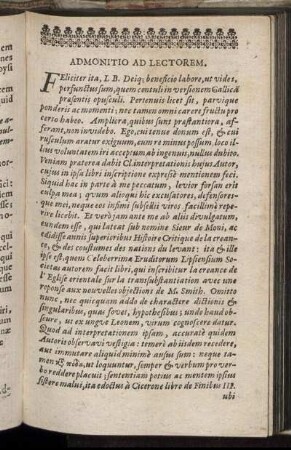 ADMONITIO AD LECTOREM.
FEliciter ita, I. B. Deiq; beneficio labore, ut vides,
perfunctus sum, quem contuli in versionem Gallicā
præsentis opusculi. Pertenuis licet sit, parvique
ponderis ac momenti, nec tamen omni carere fructu pro
certo habeo. Ampliora, quibus sunt præstantiora, af-
ferant, non invidebo. Ego, cui tenue donum est, & cui
rusculum aratur exiguum, cum res minus possum, loco il-
lius voluntatem iri acceptum ab ingenuis, nullus dubito.
Veniam præterea dabit Cl. interpretationis hujus Autor,
cujus in ipsa libri inscriptione expressè mentionem feci.
Siquid hac in parte à me peccatum, levior forsan erit
culpa mea; quum alioqui hîc excusatores, defensores-
que mei, neque eos infimi subsellii viros facillimè repe-
rire licebit. Et verò jam ante me ab aliis divulgatum,
eundem esse, qui lateat sub nomine Sieur de Moni, ac
edidisse annis superioribus Histoire Critique de la crean-
te, & des coustumes des nations du levant: ita & ille
ipse est, quem Celeberrima Eruditorum Lypsiensium So-
cietas autorem facit libri, qui inscribitur la creance de
l'Eglise orientale sur la transubstantiation avec une
reponse aux nouvelles objections de M. Smith. Omitto
nunc, nec quicquam addo de charactere dictionis &
singularibus, quas fovet, hypothesibus; unde haud ob-
scurè, ut ex ungve Leonem, virum cognoscere datur.
Quod ad interpretationem ipsam, accuratè quidem
Autoris observavi vestigia: temerè ab iisdem recedere,
aut immutare aliquid minimè ausus sum: neque ta-
men ut loquuntur, semper & verbum pro ver-
bo reddere placuit; sententiam potius ac mentem ipsius
sistere malui, ita edoctus à Cicerone libro de Finibus III.
ubi